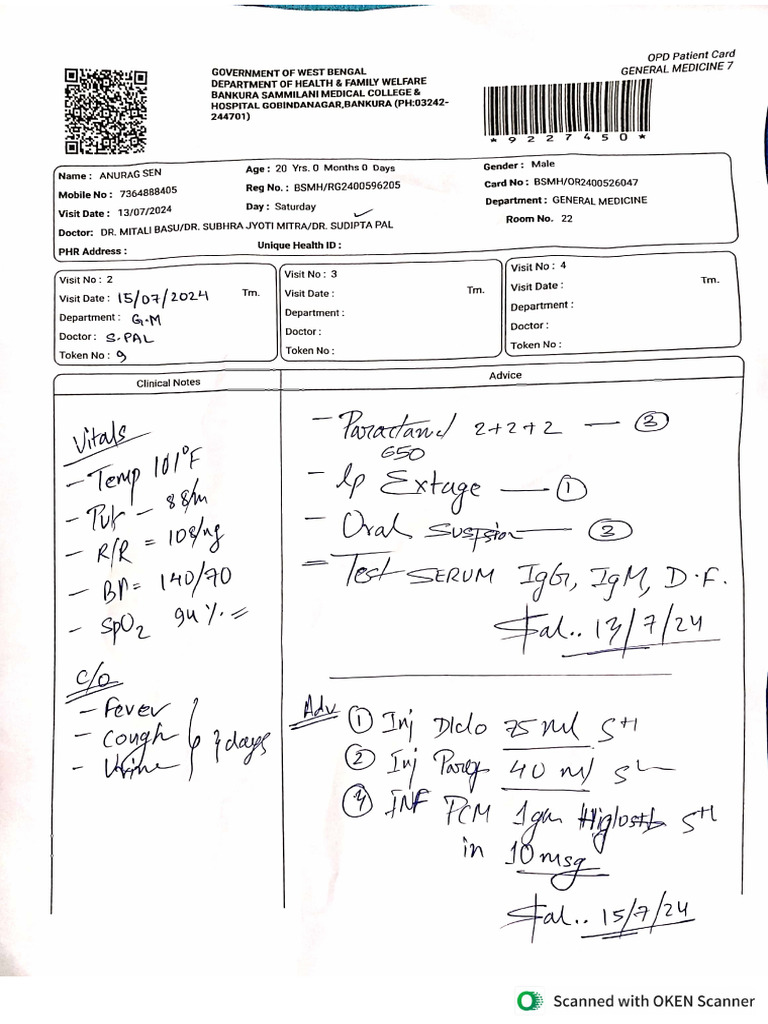 OPD Patient Card
GENERAL MEDICINE 7
GOVERNMENT OF WEST BENGAL
DEPARTMENT OF HEALTH & FAMILY WELFARE
BANKURA SAMMILANI MEDICAL COLLEGE &
HOSPITAL GOBINDANAGAR,BANKURA (PH:03242-
244701)
*9227450*
Name : ANURAG SEN Age : 20 Yrs. 0 Months 0 Days Gender : Male
Mobile No : 7364888405 Reg No. : BSMH/RG2400596205 Card No : BSMH/OR2400526047
Visit Date : 13/07/2024 Day : Saturday Department : GENERAL MEDICINE
Doctor: DR. MITALI BASU/DR. SUBHRA JYOTI MITRA/DR. SUDIPTA PAL Room No. 22
PHR Address : Unique Health ID :
Visit No : 2
Visit Date : 15/07/2024 Tm.
Department : G.M
Doctor : S.PAL
Token No : 9
Visit No : 3
Visit Date : Tm.
Department :
Doctor :
Token No :
Visit No : 4
Visit Date : Tm.
Department :
Doctor :
Token No :
Clinical Notes
Vitals
- Temp 101°F
- - 88/m
- R/R = 108/
- BP= 140/70
- SpO2 94 %. =
C/O
- Fever
- Cough
- Urine
days
Advice
- 2+2+2 — 3
650
- Extage — 1
- Oral — 3
- Test SERUM IgG, IgM, D.F.
13/7/24
Adv
1 Inj Diclo 75 ml St
2 Inj 40 ml
INF PCM 1gm St
in 10
15/7/24
Scanned with OKEN Scanner